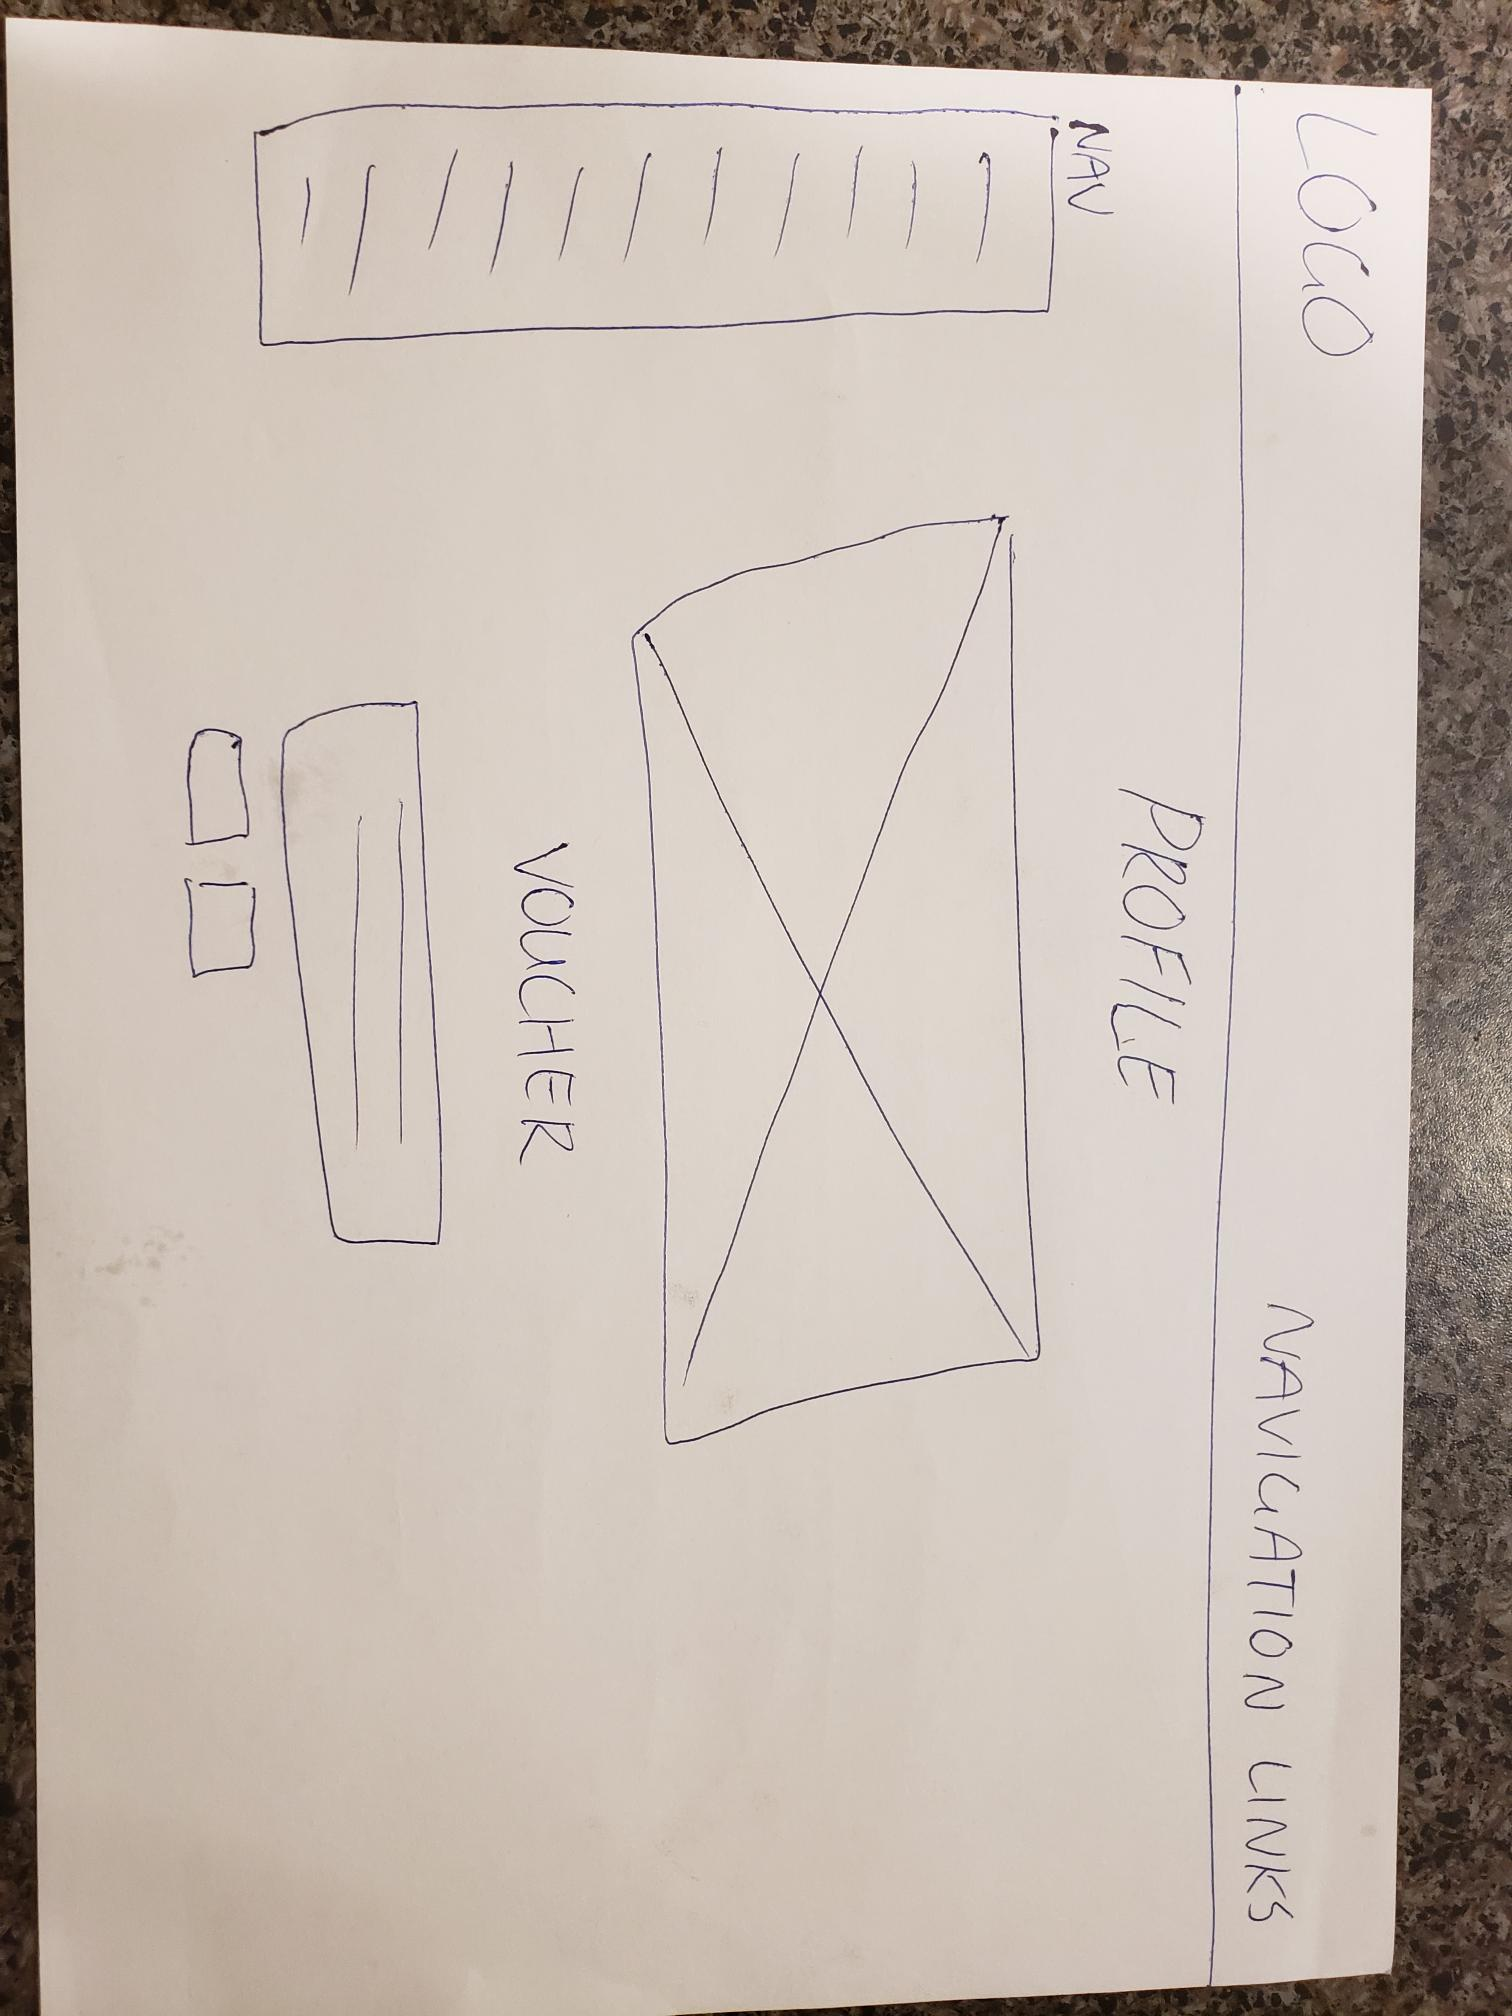 LOGO
NAVIGATION LINKS
PROFILE
NAV
VOUCHER